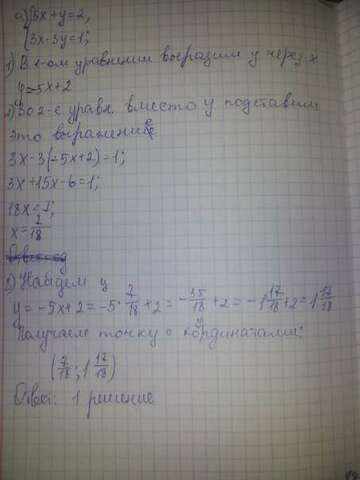 а) 5x+y=2,
3x-3y=1;
1) В 1-ом уравнении выразим y через x
y=-5x+2
2) Во 2-е уравн. вместо y подставим
это выражение
3x-3(-5x+2)=1;
3x+15x-6=1;
18x=7;
x=7/18
3) Найдем y
y=-5x+2=-5·7/18+2=-35/18+2=-1 17/18+2=1 17/18
Получаем точку с координатами:
(7/18; 1 17/18)
Ответ: 1 решение